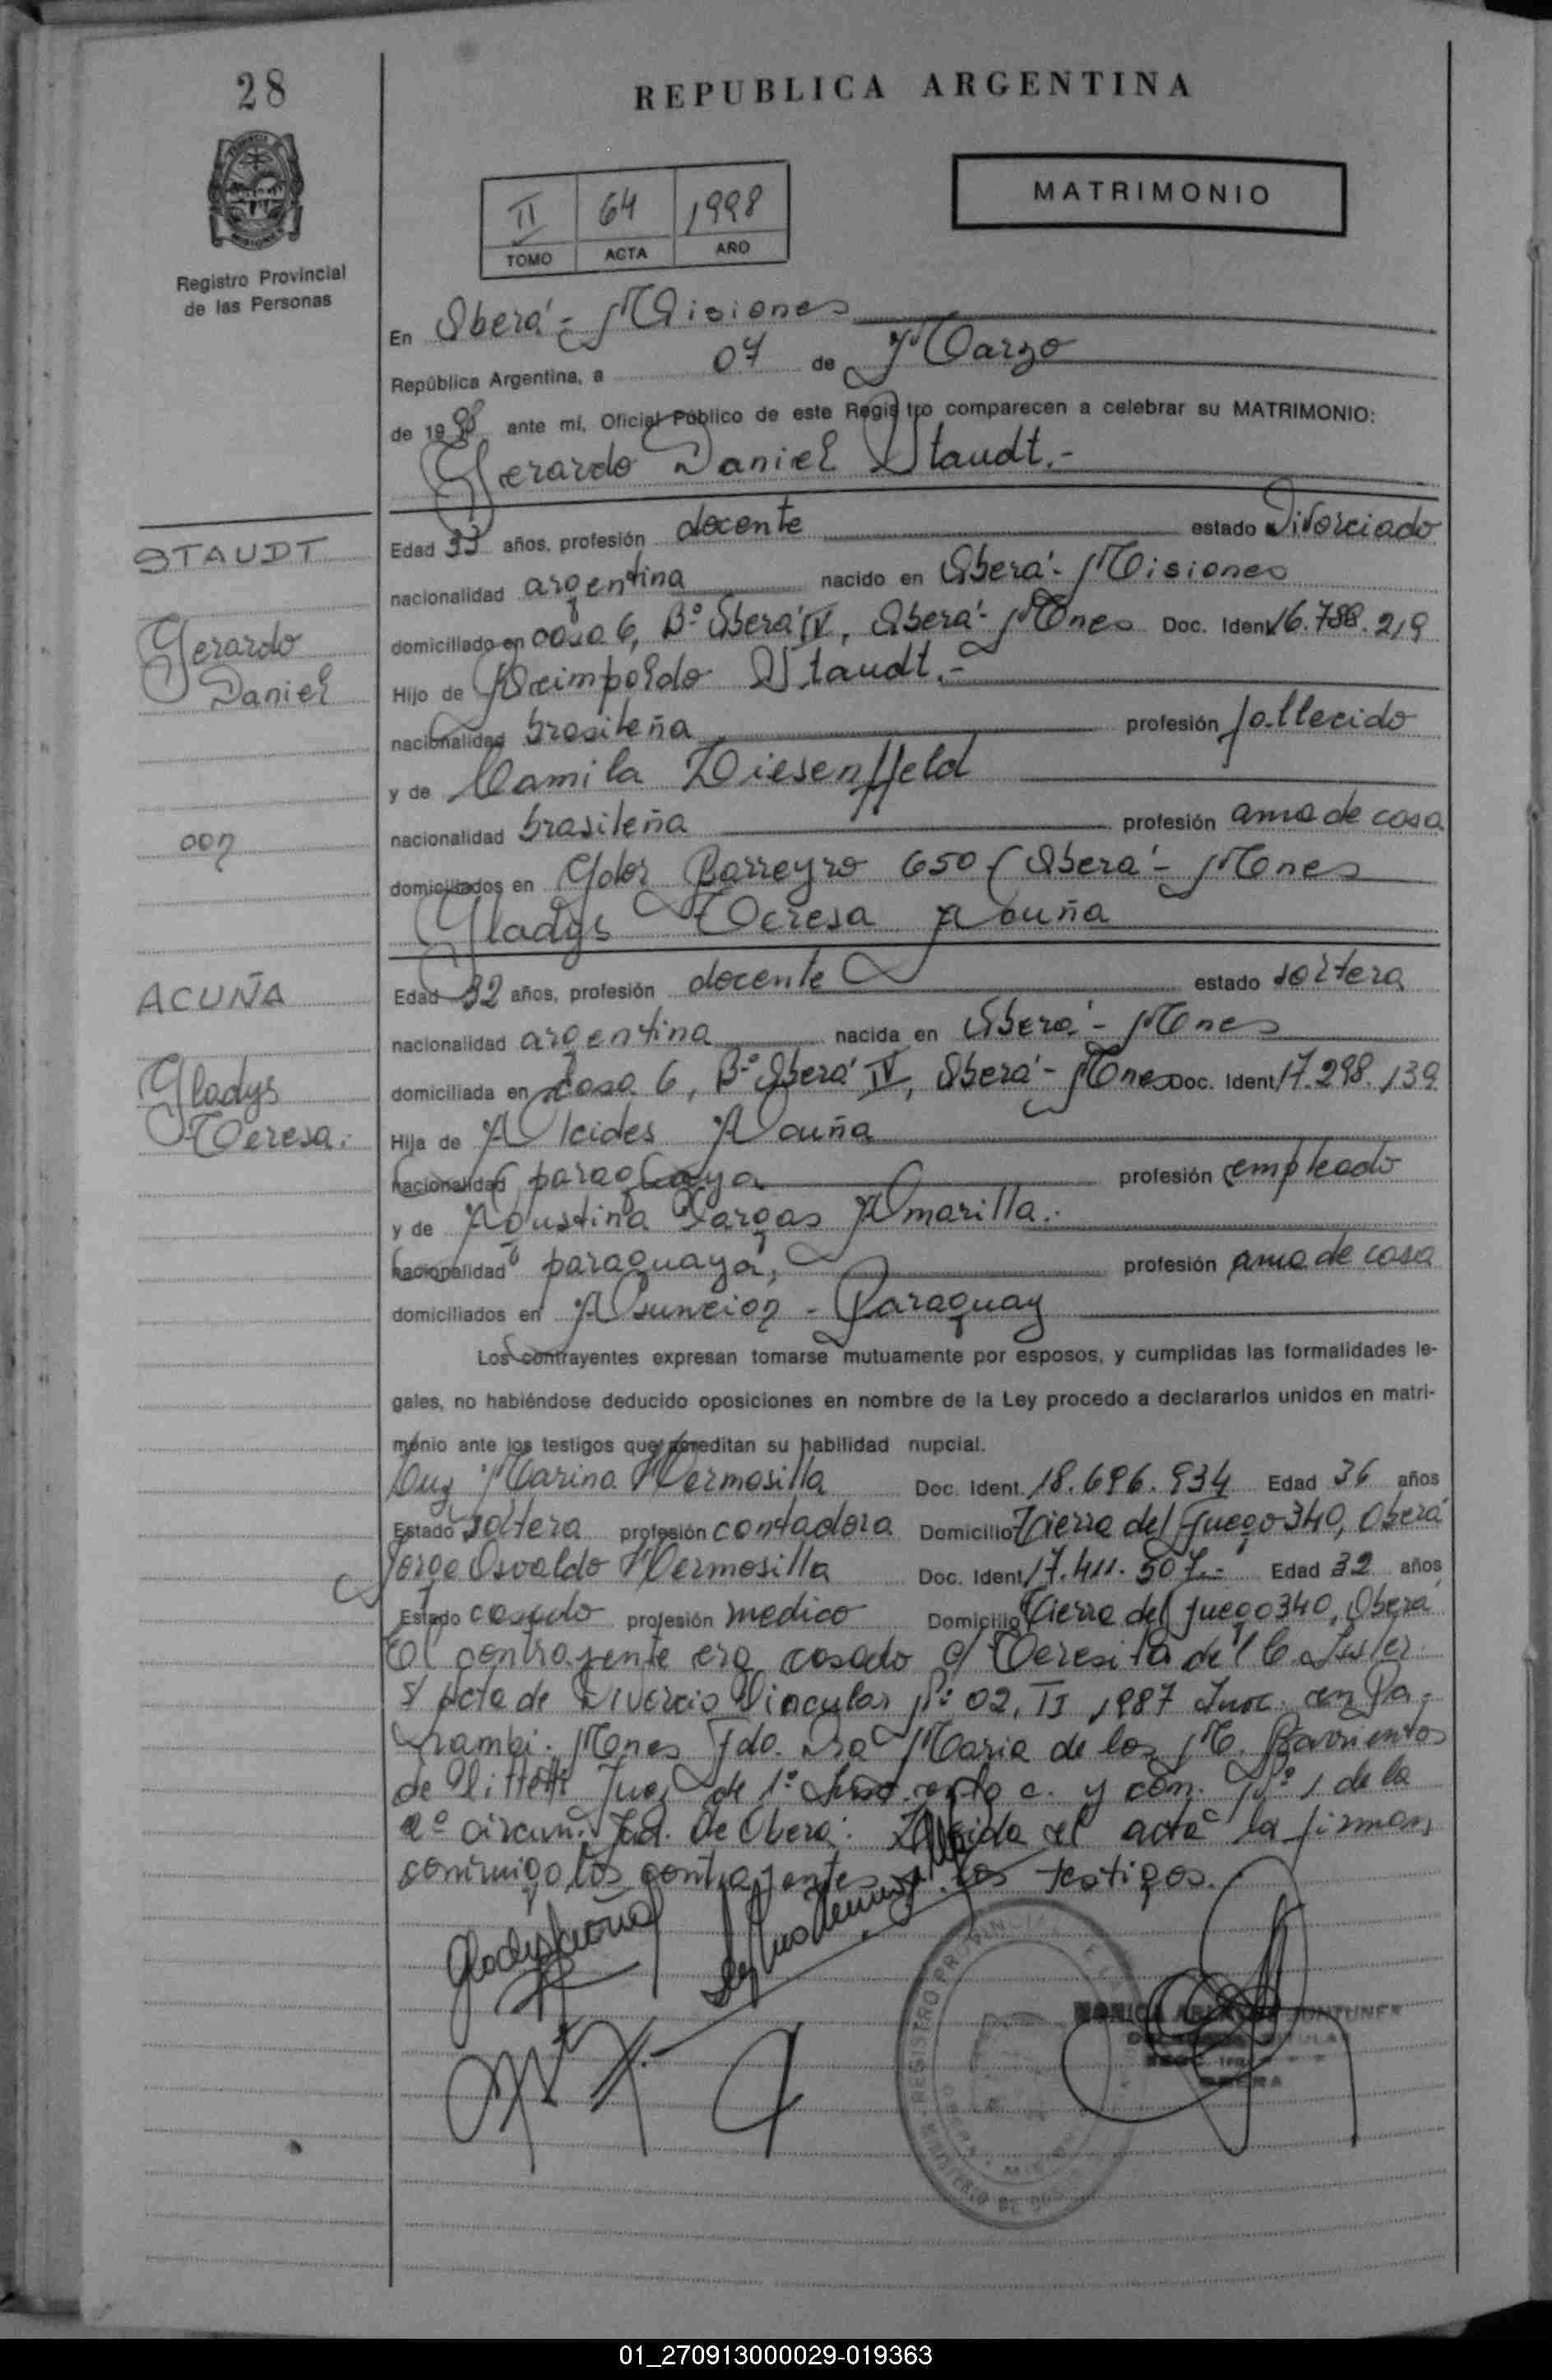 28
REPUBLICA ARGENTINA
MATRIMONIO
II 64 1998
TOMO ACTA AÑO
Registro Provincial
de las Personas
En Oberá - Misiones
República Argentina, a 07 de Marzo
de 1998 ante mí, Oficial Público de este Registro comparecen a celebrar su MATRIMONIO:
Gerardo Daniel Staudt.-
STAUDT
Gerardo
Daniel
con
ACUÑA
Gladys
Teresa.
Edad 33 años, profesión docente estado Divorciado
nacionalidad argentina nacido en Oberá - Misiones
domiciliado en casa 6, Bº Oberá IV, Oberá - Mnes Doc. Ident 16.788.219
Hijo de Reimpoldo Staudt.-
nacionalidad brasileña profesión fallecido
y de Camila Diesenffeld
nacionalidad brasileña profesión ama de casa
domiciliados en Gdor Barreyro 650, Oberá - Mnes
Gladys Teresa Acuña
Edad 32 años, profesión docente estado soltera
nacionalidad argentina nacida en Oberá - Mnes
domiciliada en Casa 6, Bº Oberá IV, Oberá - Mnes Doc. Ident 17.298.139
Hija de Alcides Acuña
nacionalidad paraguaya profesión empleado
y de Agustina Vargas Amarilla.
nacionalidad paraguaya, profesión ama de casa
domiciliados en Asunción - Paraguay
Los contrayentes expresan tomarse mutuamente por esposos, y cumplidas las formalidades le-
gales, no habiéndose deducido oposiciones en nombre de la Ley procedo a declararlos unidos en matri-
monio ante los testigos que acreditan su habilidad nupcial.
Luz Marina Hermosilla Doc. Ident. 18.696.934 Edad 36 años
Estado soltera profesión contadora Domicilio Tierra del Fuego 340, Oberá
Jorge Osvaldo Hermosilla Doc. Ident 17.411.507.- Edad 32 años
Estado casado profesión medico Domicilio Tierra del fuego 340, Oberá
El contrayente era casado c/ Teresita del C.
s/ acta de Divorcio Vincular Nº 02, II 1987 Insc. en Pa-
nambi. Mnes Fdo. Dra Maria de los M. Barrientos
de Juez de 1º c. y com. Nº 1 de la
2º circun. Jud. de Oberá. Leida el acta la firman
conmigo los contrayentes los testigos.
Gladys Acuña
REGISTRO PROVINCIAL
OBERA
01_270913000029-019363